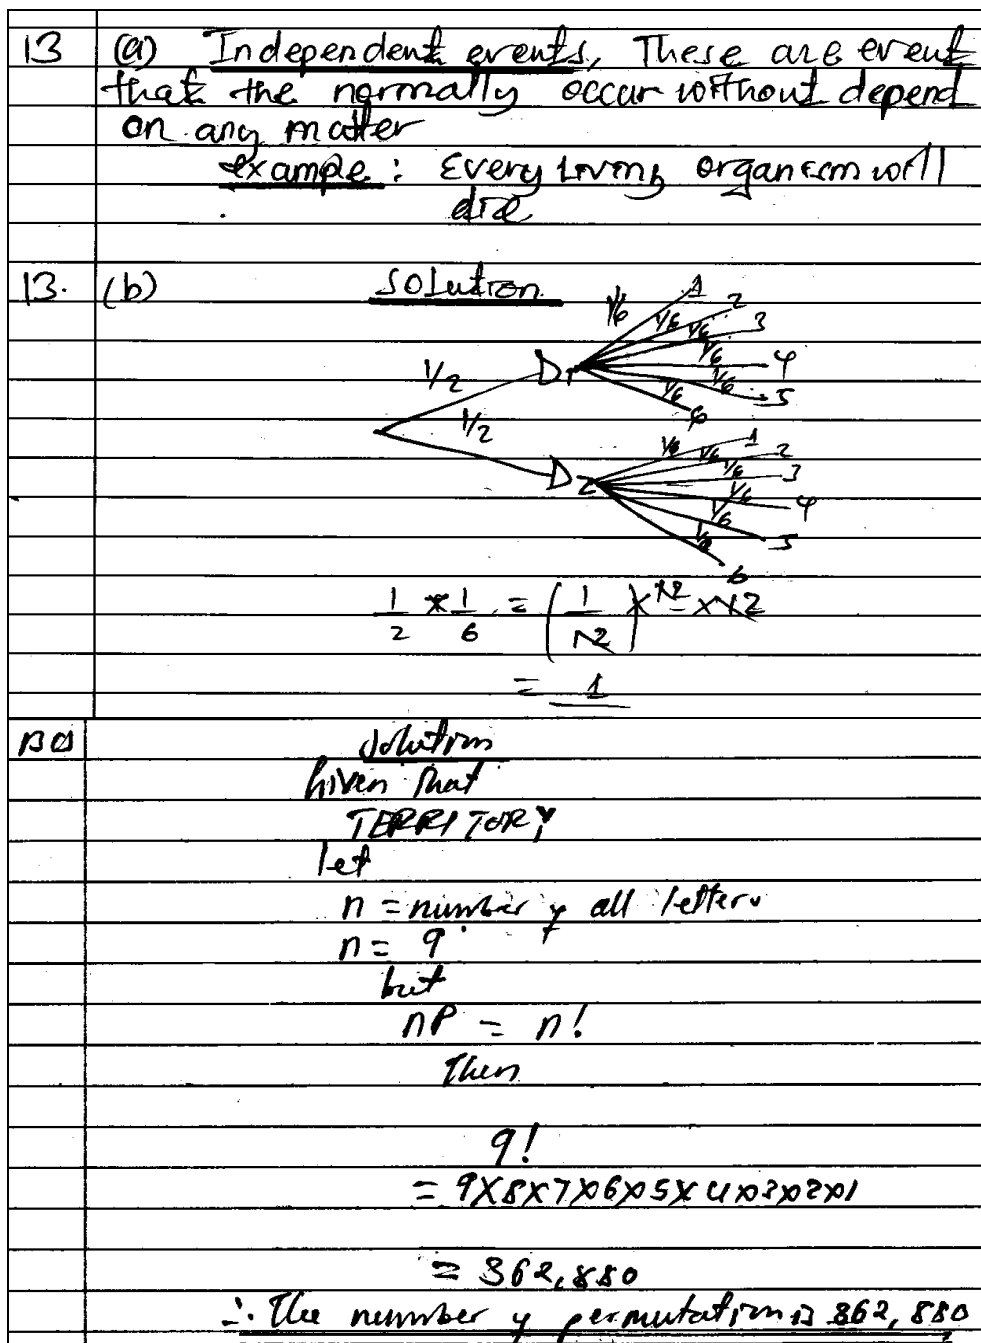 13 (a) Independent events, These are event
that the normally occur without depend
on any matter
example: Every living organism will
die
13. (b) Solution
1/6 1
1/6 2
1/6 3
1/2 D1 1/6 4
1/6 5
1/6 6
1/2 D2 1/6 1
1/6 2
1/6 3
1/6 4
1/6 5
1/6 6
1/2 × 1/6 = (1/12) × 12
= 1
Solution
Given that
TERRITORY
let
n = number of all letters
n = 9
but
nP = n!
Then
9!
= 9×8×7×6×5×4×3×2×1
= 362,880
∴ The number of permutation is 362,880